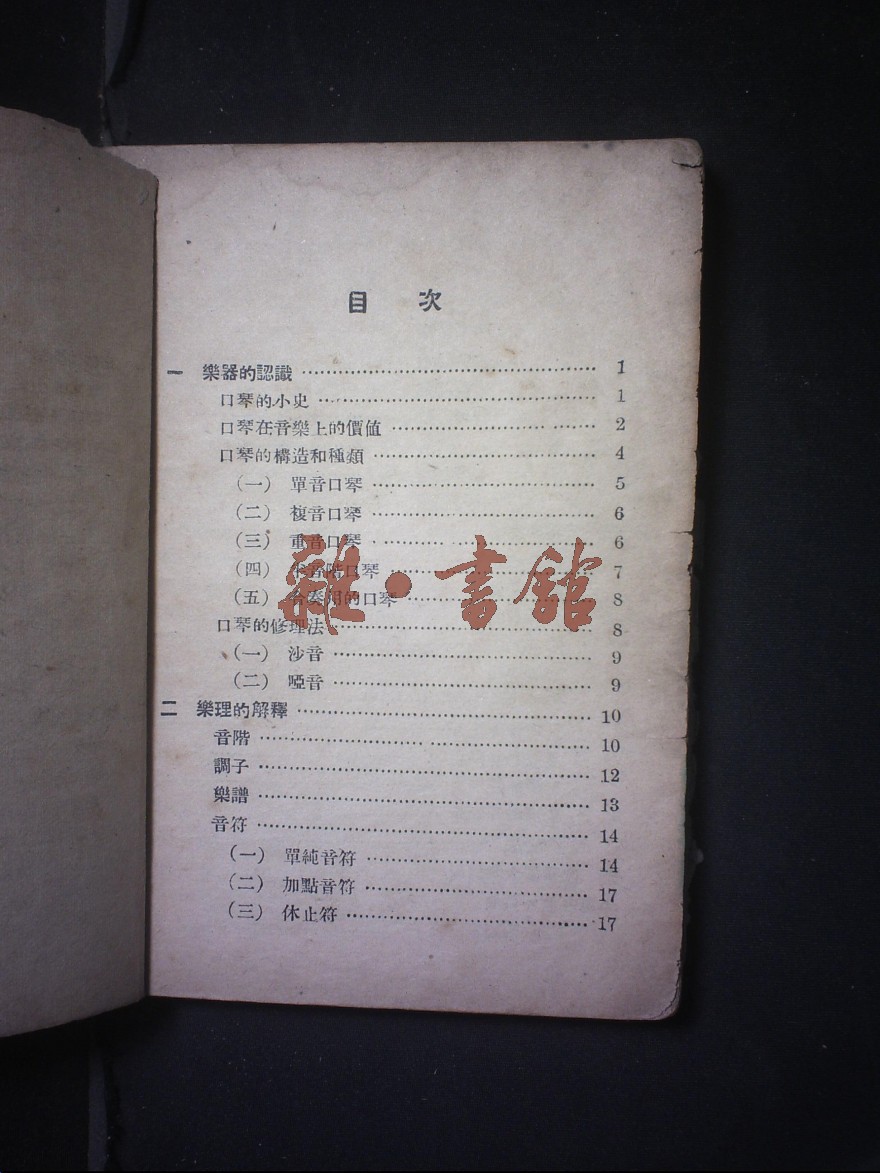 目 次
一 樂器的認識 …… 1
口琴的小史 …… 1
口琴在音樂上的價值 …… 2
口琴的構造和種類 …… 4
（一） 單音口琴 …… 5
（二） 複音口琴 …… 6
（三） 重音口琴 …… 6
（四） 音階口琴 …… 7
（五） 合奏用的口琴 …… 8
口琴的修理法 …… 8
（一） 沙音 …… 9
（二） 啞音 …… 9
二 樂理的解釋 …… 10
音階 …… 10
調子 …… 12
樂譜 …… 13
音符 …… 14
（一） 單純音符 …… 14
（二） 加點音符 …… 17
（三） 休止符 …… 17
雜·書館